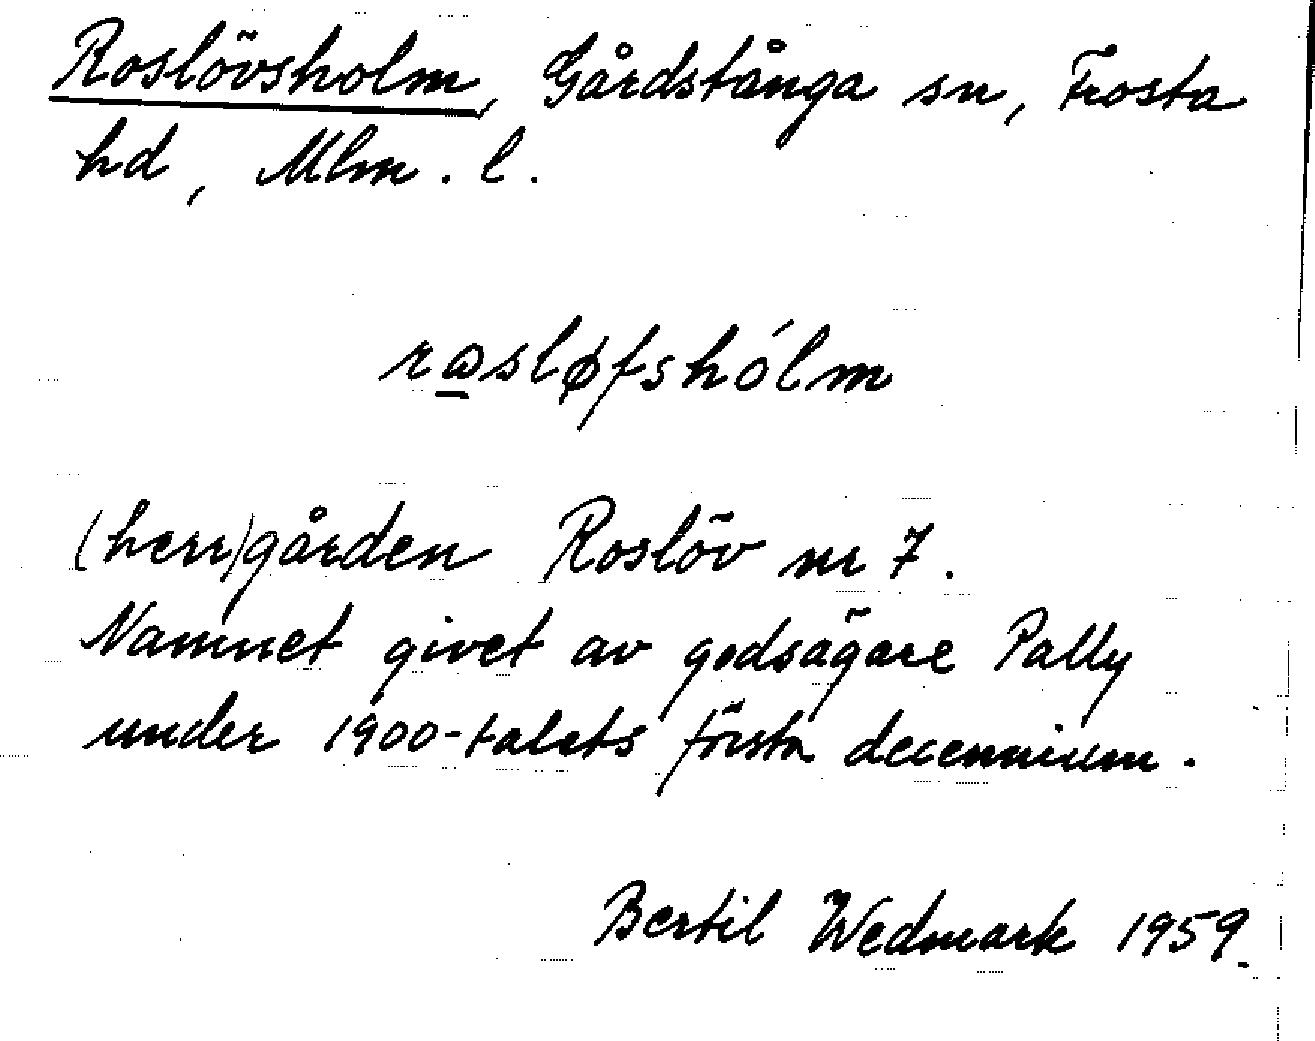 Roslövsholm, Gårdstånga sn, Frosta
hd, Mlm. l.
rωsløfshólm
(herr)gården Roslöv nr 7.
Namnet givet av godsägare Pally
under 1900-talets första decennium.
Bertil Wedmark 1959.